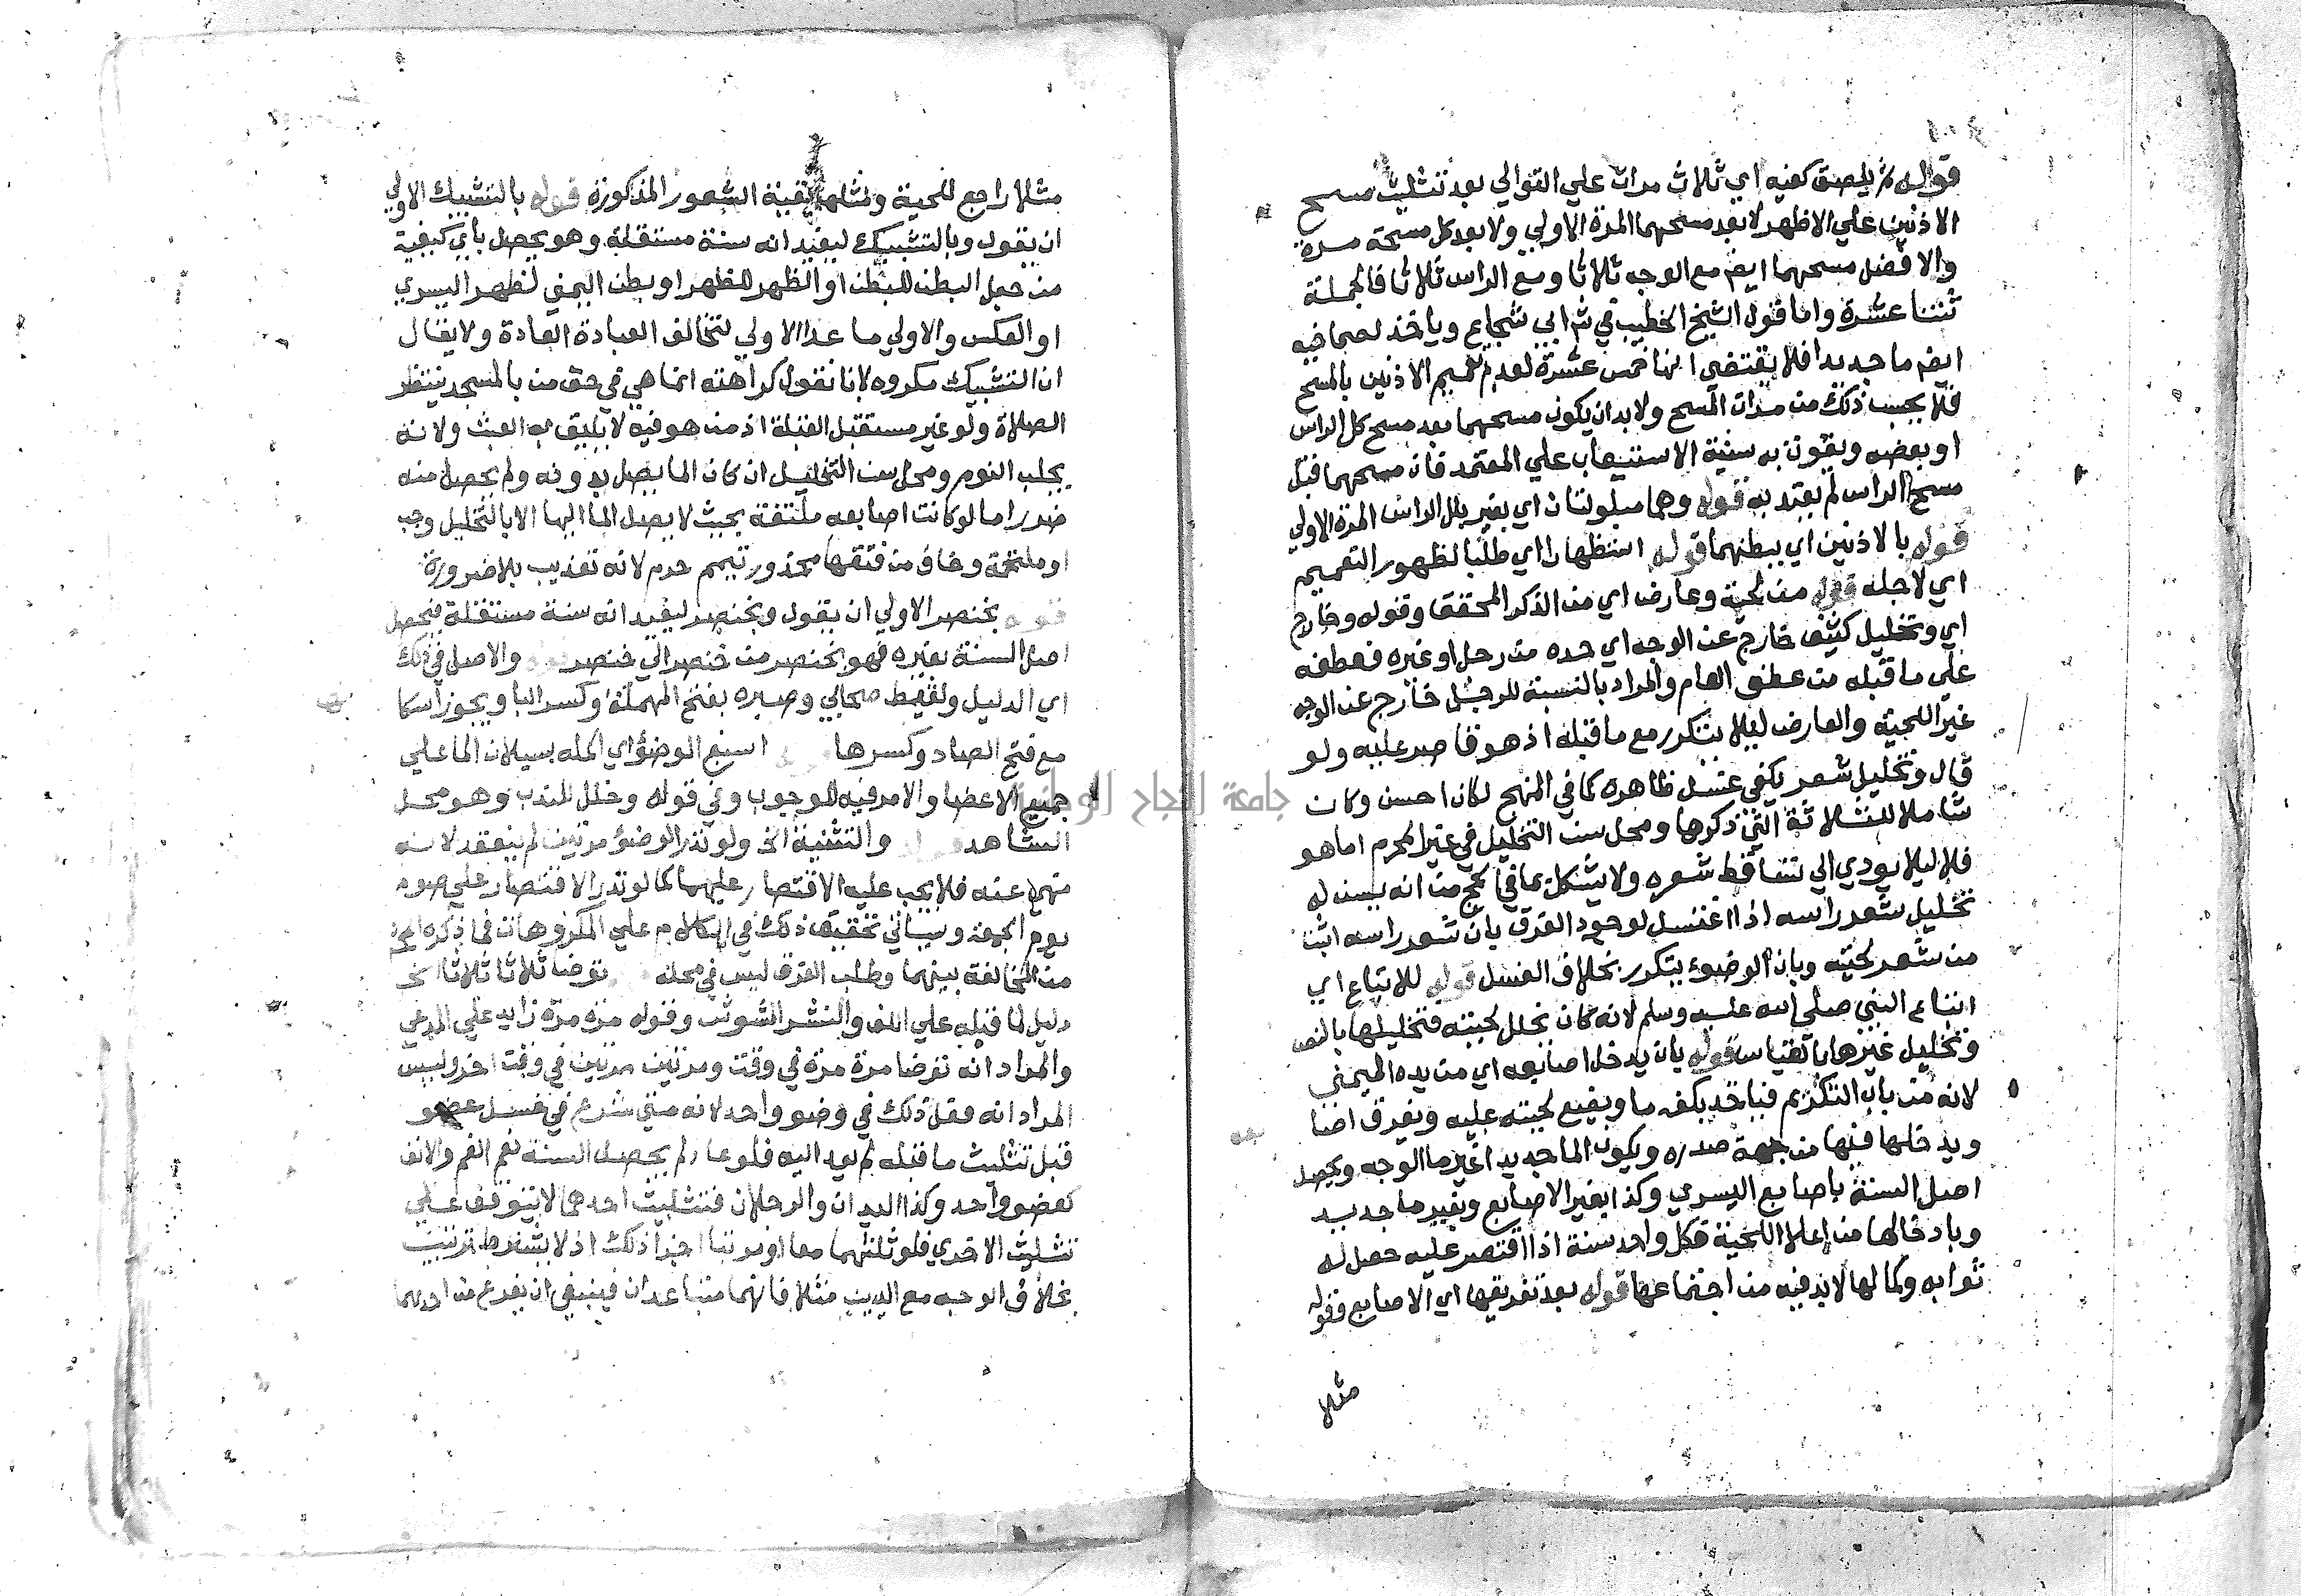 قوله ثم يلصق كفيه اي ثلاث مرات علي التوالي بعد تثليث مسح
الاذنين علي الاظهر لا بعد مسحهما المرة الاولي ولا بعد كل مسحة مرة
والافضل مسحهما ايضا مع الوجه ثلاثا ومع الراس ثلاثا فالجملة
ثنتا عشرة واما قول الشيخ الخطيب في شرح ابي شجاع وياخذ لصماخيه
ايضا ما جديدا فلا يقتضي انها خمس عشرة لعدم تعميم الاذنين بالمسح
فلا يحسب ذلك من مرات المسح ولا بد ان يكون مسحهما بعد مسح كل الراس
او بعضه ويفوت به سنية الاستيعاب علي المعتمد فان مسحهما قبل
مسح الراس لم يعتد به قوله وهما مبلولتان اي بغير بلل الراس المرة الاولي
قوله بالاذنين اي ببطنهما قوله استظهارا اي طلبا لظهور التعميم
اي لاجله قوله من لحية وعارض اي من الذكر المحقق وقوله وخارج
اي وتخليل كثيف خارج عن الوجه اي حده من رجل او غيره فعطفه
علي ما قبله من عطف العام والمراد بالنسبة للرجل خارج عن الوجه
غير اللحية والعارض ليلا يتكرر مع ما قبله اذ هو قاصر عليه ولو
قال وتخليل شعر يكفي غسل ظاهره كما في المنهج لكان احسن وكان
شاملا للثلاثة التي ذكرها ومحل سن التخليل في غير المحرم اما هو
فلا ليلا يودي الي تساقط شعره ولا يشكل بما في الحج من انه يسن له
تخليل شعر راسه اذا اغتسل لوجود الفرق بان شعر راسه اثبت
من شعر لحيته وبان الوضوء يتكرر بخلاف الغسل قوله للاتباع اي
اتباع النبي صلي الله عليه وسلم لانه كان يخلل لحيته فتخليلها بالنص
وتخليل غيرها بالقياس قوله بان يدخل اصابعه اي من يده اليمني
لانه من باب التكريم فياخذ بكفه ما ويضع لحيته عليه ويفرق اصا
ويدخلها فيها من جهة صدره ويكون الما جديدا غير ما الوجه ويحصل
اصل السنة باصابع اليسري وكذا بغير الاصابع وبغير ما جديد
وبادخالها من اعلا اللحية فكل واحد سنة اذا اقتصر عليه حصل له
ثوابه وكمالها لا بد فيه من اجتماعها قوله بعد تفريقها اي الاصابع فقوله
مثلا
مثلا راجع للحية ومثلها بقية الشعور المذكورة قوله بالتشبيك الاولي
ان يقول وبالتشبيك ليفيد انه سنة مستقلة وهو يحصل باي كيفية
من جعل البطن للبطن او الظهر للظهر او بطن اليمني لظهر اليسري
او العكس والاولي ما عدا الاولي لتخالف العبادة العادة ولا يقال
ان التشبيك مكروه لانا نقول كراهته انما هي في حق من بالمسجد ينتظر
الصلاة ولو غير مستقبل القبلة اذ من هو فيه لا يليق به العبث ولانه
يجلب النوم ومحل سن التخليل ان كان الما يصل بدونه ولم يحصل منه
ضررا ما لو كانت اصابعه ملتفة بحيث لا يصل الما اليها الا بالتخليل وجب
او ملتحمة وخاف من فتقها محذور تيمم حرم لانه تعذيب بلا ضرورة
قوله بخنصر الاولي ان يقول وبخنصر ليفيد انه سنة مستقلة فيحصل
اصل السنة بغيره فهو بخنصر من خنصر الي خنصر قوله والاصل في ذلك
اي الدليل ولقيط صحابي وصبره بفتح المهملة وكسر البا ويجوز اسكا
مع فتح الصاد وكسرها اسبغ الوضؤ اي اكمله بسيلان الما علي
جميع الاعضا والامر فيه للوجوب وفي قوله وخلل للندب وهو محل
الشاهد قوله والتثنية الخ ولو نذر الوضؤ مرتين لم ينعقد لانه
منهي عنه فلا يجب عليه الاقتصار عليهما كما لو نذر الاقتصار علي صوم
يوم الجمعة وسياتي تحقيق ذلك في الكلام علي المكروهات فما ذكره المح
من المخالفة بينهما وطلب الفرق ليس في محله توضا ثلاثا ثلاثا الخ
دليل لما قبله علي اللف والنشر المشوش وقوله مرة مرة زايد علي المدعي
والمراد انه توضا مرة مرة في وقت ومرتين مرتين في وقت اخر وليس
المراد انه فعل ذلك في وضو واحد لانه متي شرع في غسل عضو
قبل تثليث ما قبله لم يعد اليه فلو عاد لم يحصل السنة نعم الفم والانف
كعضو واحد وكذا اليدان والرجلان فتثليث احدهما لا يتوقف علي
تثليث الاخري فلو ثلثهما معا او مرتبا اجزا ذلك اذ لا يشترط ترتيب
بخلاف الوجه مع اليدين مثلا فانهما متباعدان فينبغي ان يفرغ من احدهما
جامعة النجاح الوطنية